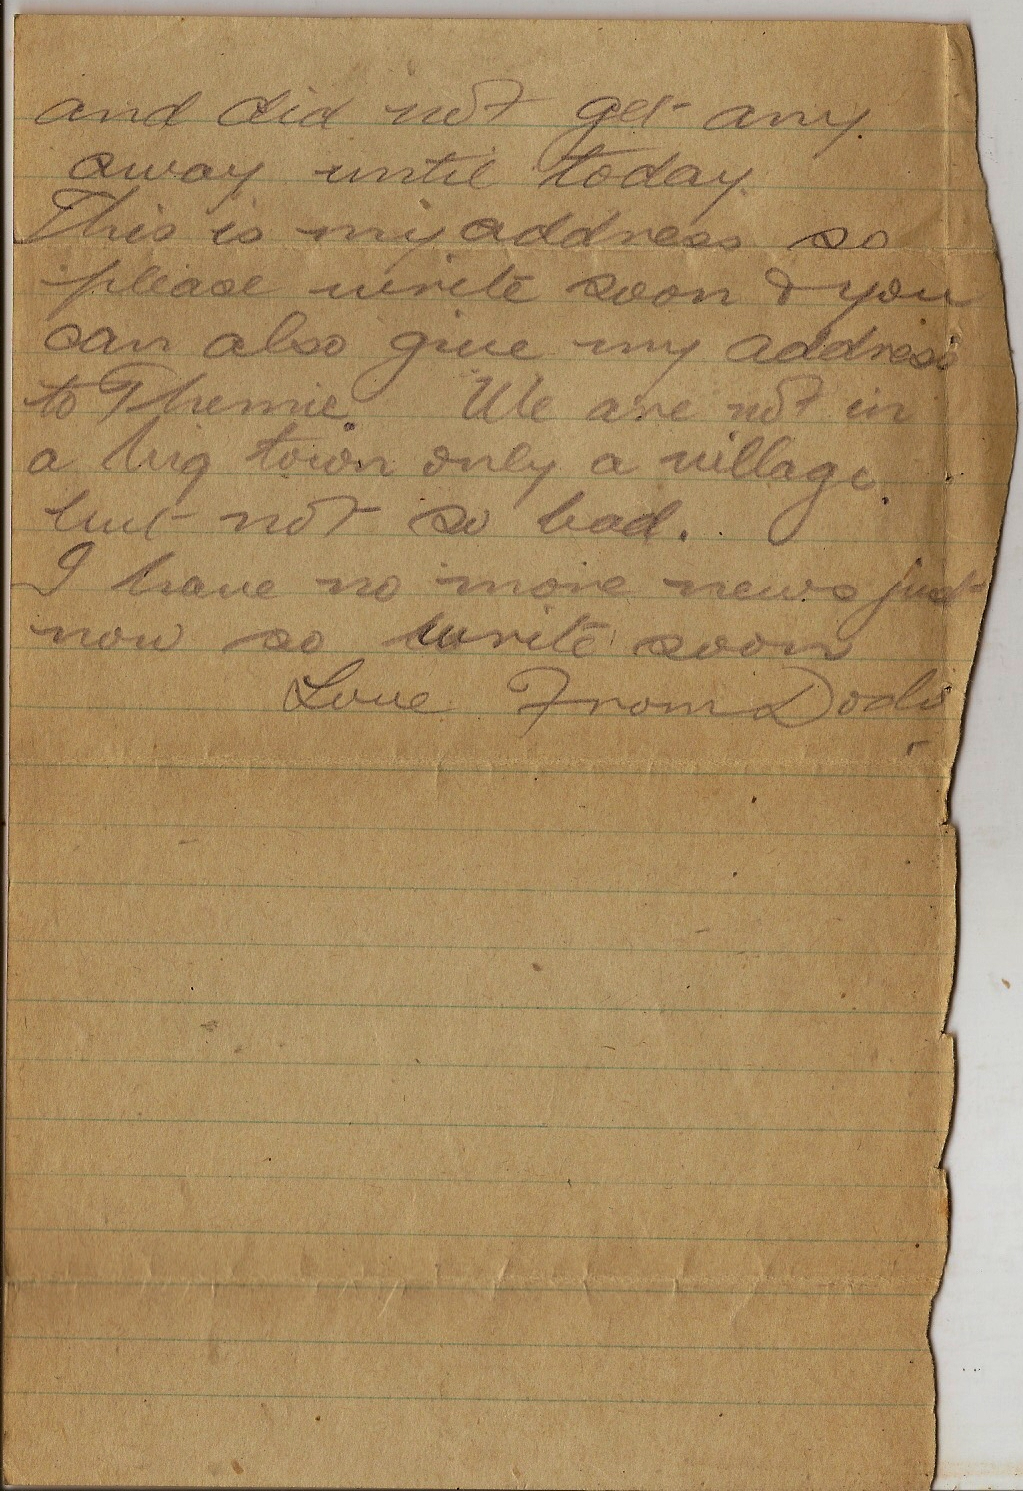 and did not get any
away until today.
This is my address so
please write soon & you
can also give my address
to Themie. We are not in
a big town only a village.
but not so bad.
I have no more news just
now so write soon
Love From Dods